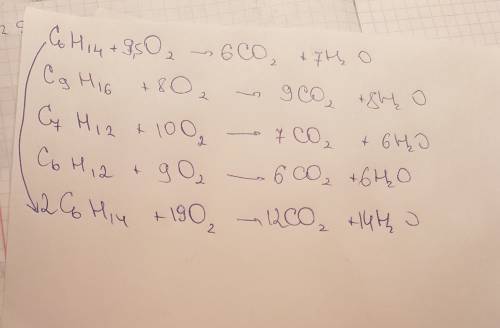 C6H14 + 9,5O2 → 6CO2 + 7H2O
C9H16 + 8O2 → 9CO2 + 8H2O
C7H12 + 10O2 → 7CO2 + 6H2O
C6H12 + 9O2 → 6CO2 + 6H2O
2C6H14 + 19O2 → 12CO2 + 14H2O